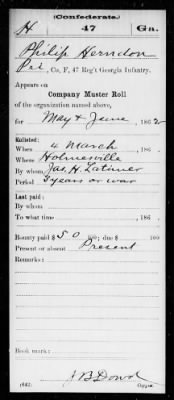 (Confederate.)
H 47 Ga.
Philip Herndon
Pvt, Co. F, 47 Reg't Georgia Infantry.
Appears on
Company Muster Roll
of the organization named above,
for May & June, 1862
Enlisted:
When 4 March, 186
Where Holmesville
By whom Jas. H. Latimer
Period 3 years or war
Last paid:
By whom
To what time, 186 .
Bounty paid $50 100; due $ 100
Present or absent Present
Remarks:
Book mark:
J B Dowd
(642) Copyist.